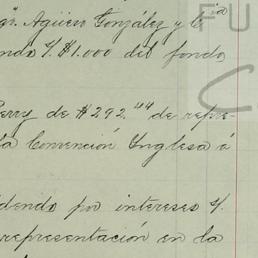 gr. Agüero González y Cía
ndo S/. $1.000 del fondo
Perry de $292.44 de repre-
la Convención Inglesa á
dendo por intereses S/.
representación en la
FU
C